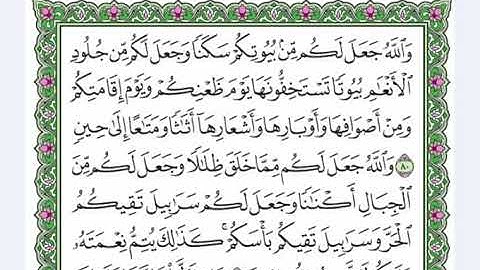 وَٱللَّهُ جَعَلَ لَكُم مِّنۢ بُيُوتِكُمْ سَكَنًا وَجَعَلَ لَكُم مِّن جُلُودِ
ٱلْأَنْعَٰمِ بُيُوتًا تَسْتَخِفُّونَهَا يَوْمَ ظَعْنِكُمْ وَيَوْمَ إِقَامَتِكُمْ
وَمِنْ أَصْوَافِهَا وَأَوْبَارِهَا وَأَشْعَارِهَآ أَثَٰثًا وَمَتَٰعًا إِلَىٰ حِينٍ
٨٠ وَٱللَّهُ جَعَلَ لَكُم مِّمَّا خَلَقَ ظِلَٰلًا وَجَعَلَ لَكُم مِّنَ
ٱلْجِبَالِ أَكْنَٰنًا وَجَعَلَ لَكُمْ سَرَٰبِيلَ تَقِيكُمُ
ٱلْحَرَّ وَسَرَٰبِيلَ تَقِيكُم بَأْسَكُمْ ۚ كَذَٰلِكَ يُتِمُّ نِعْمَتَهُۥ